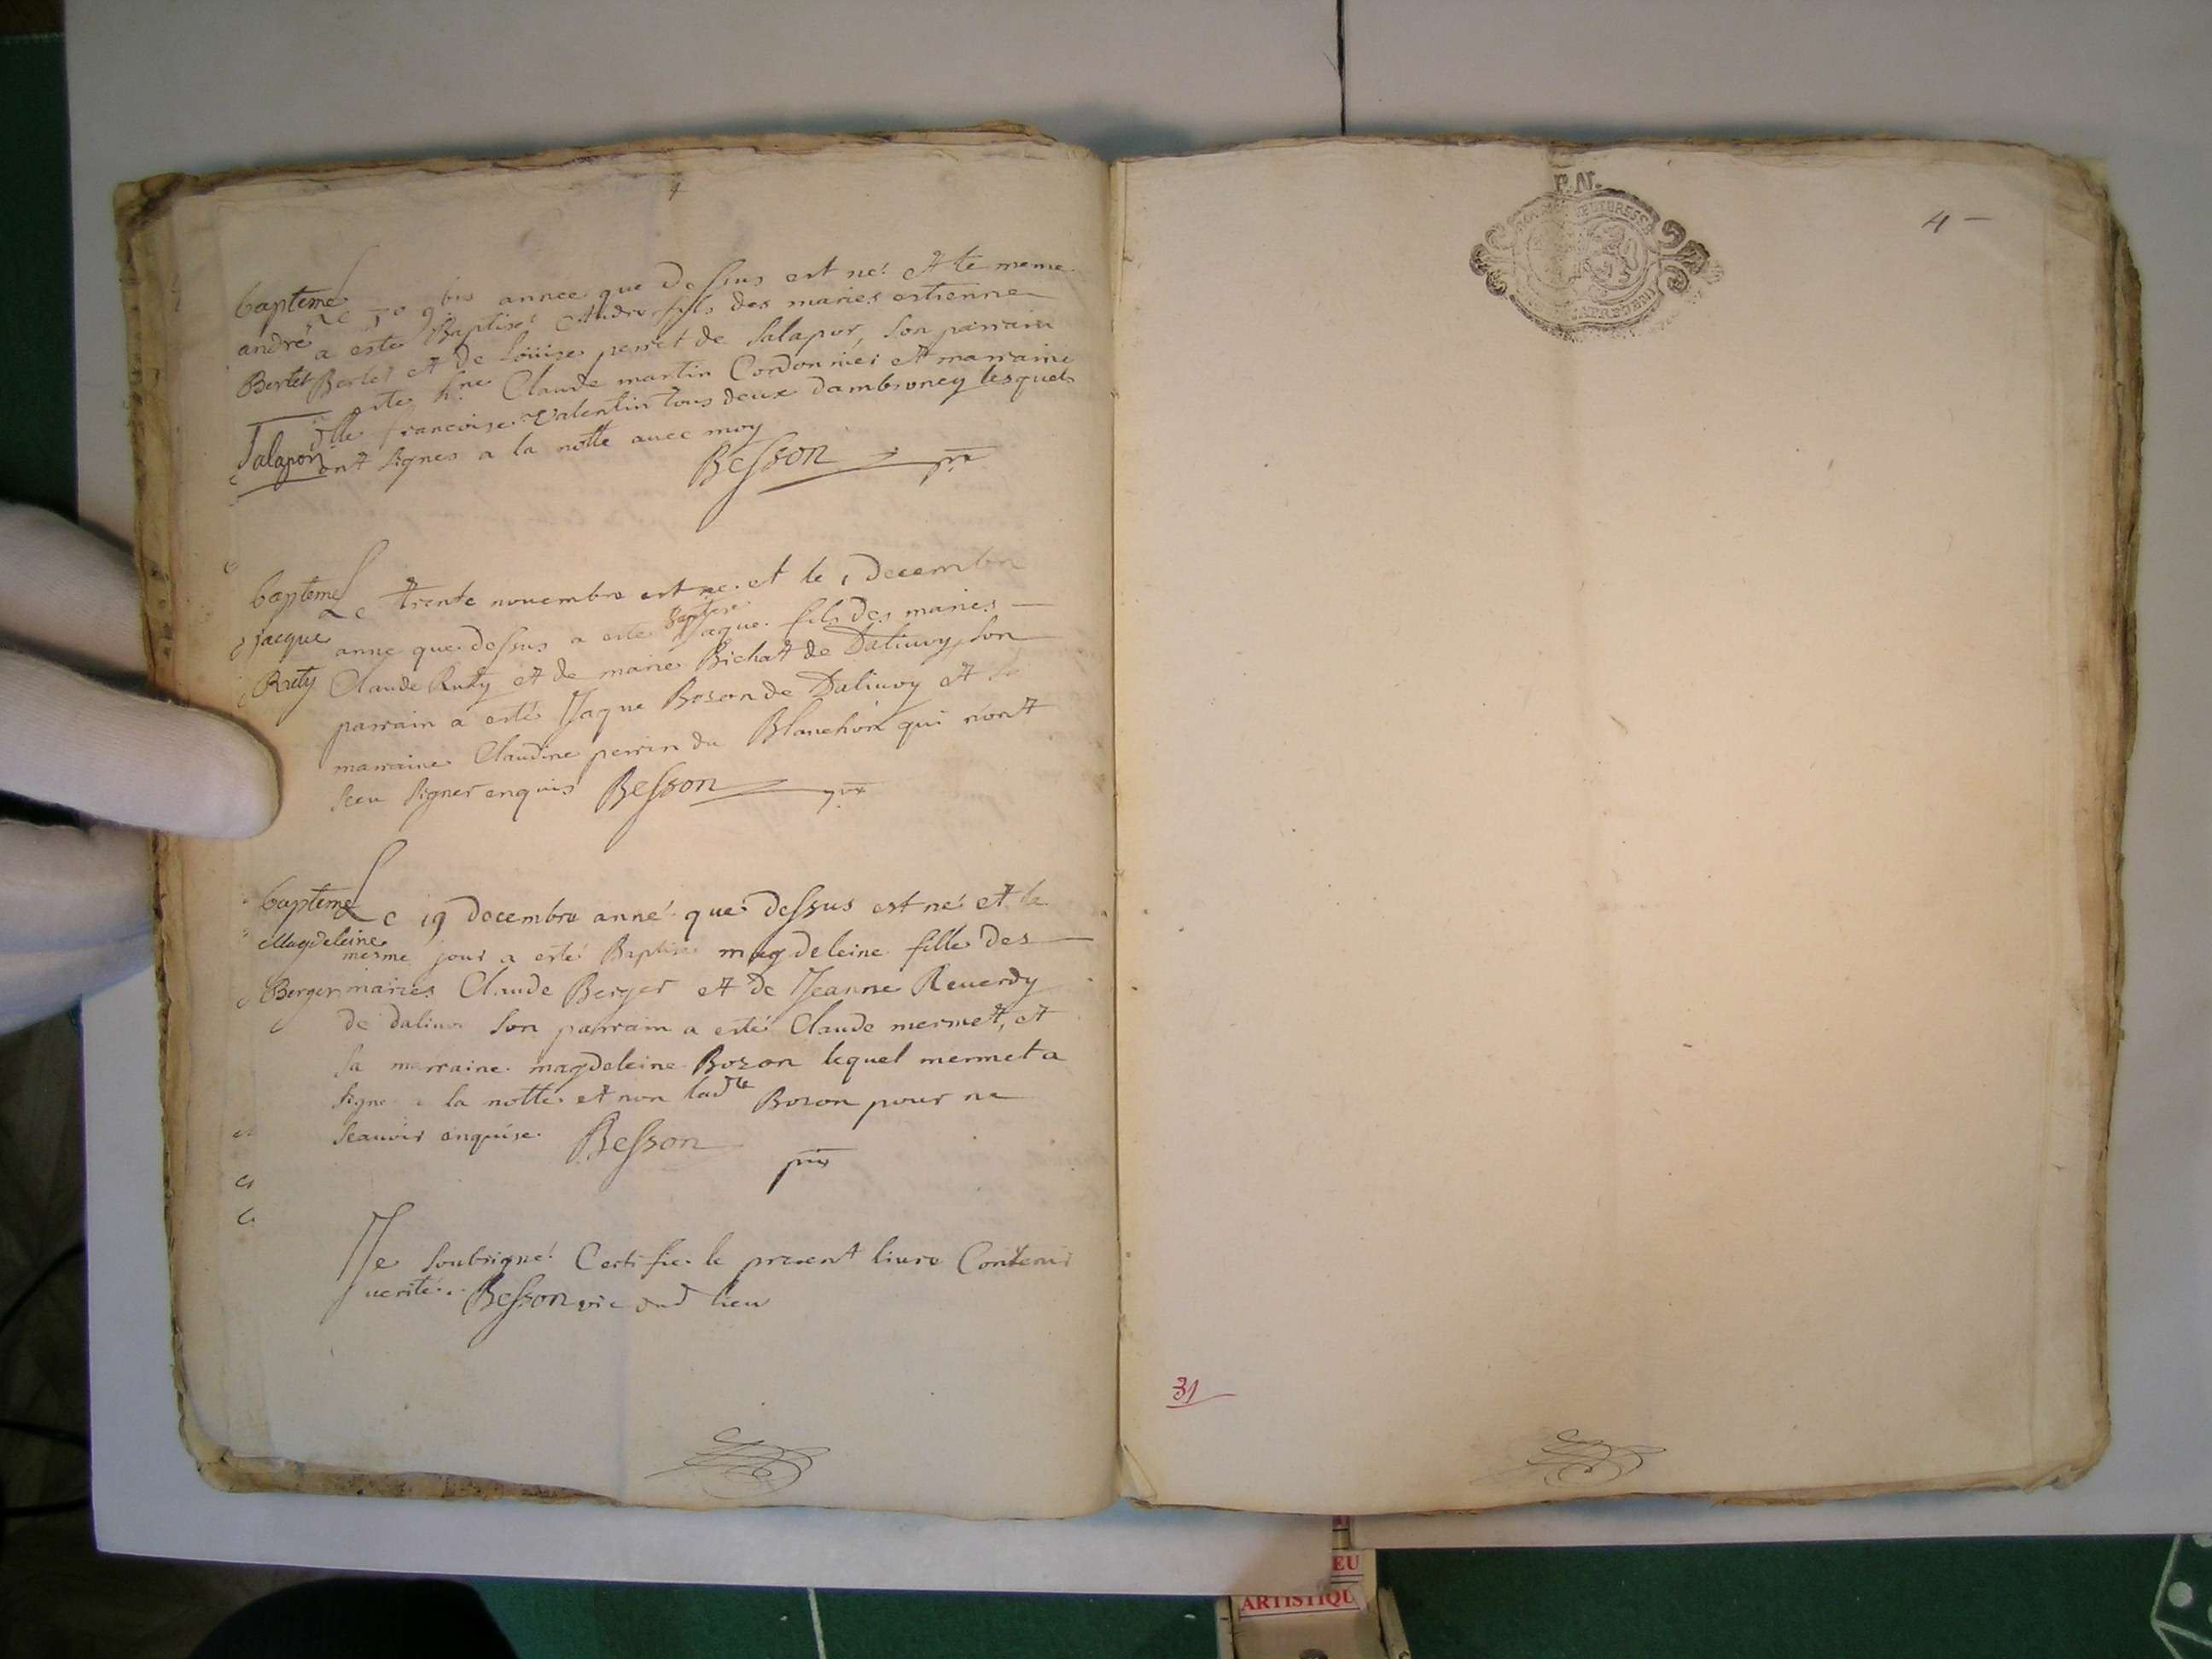 4
bapteme
andré
Bertet
Salapor
Le 30 9bre annee que dessus est né et le meme
a esté Baptisé Andre fils des maries estienne
Bertet et de Loüise perret de Salapor, son parrain
a esté hne Claude martin Cordonnier et marraine
dlle francoise Valentin tous deux dambroney lesquels
ont signes a la notte avec moy
Besson
bapteme
jacque
Ruty
Le trente novembre est né et le 1 decembre
anne que dessus a esté Baptisé Jaque fils des maries
Claude Ruty et de marie Bichat de Dalivoy, son
parrain a esté Jaque Bozon de Dalivoy et sa
marraine Claudine perrin du Blanchon qui n'ont
sceu signer enquis Besson
bapteme
Magdeleine
Berger
Le 19 decembre anné que dessus est né et le
mesme jour a esté Baptise magdeleine fille des
maries Claude Berger et de Jeanne Reverdy
de dalivoi son parrain a esté Claude mermet, et
sa marraine magdeleine Bozon lequel mermet a
signe a la notte et non ladte Bozon pour ne
scavoir enquise. Besson
Je soubsigné Certifie le present livre Contenir
verité. Besson vic dud lieu
P.N.
4
31
EU
ARTISTIQU